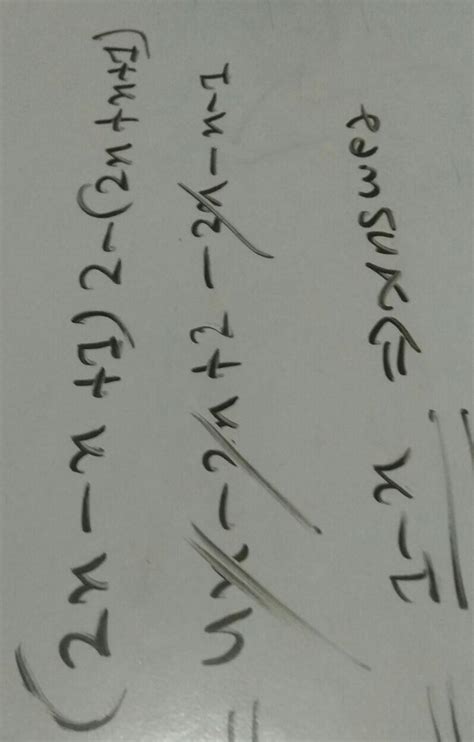 (2x - x + 1) 2 - (2x + x + 1)
= 4x - 2x + 2 - 2x - x - 1
= 1 - x ⇐ Answer